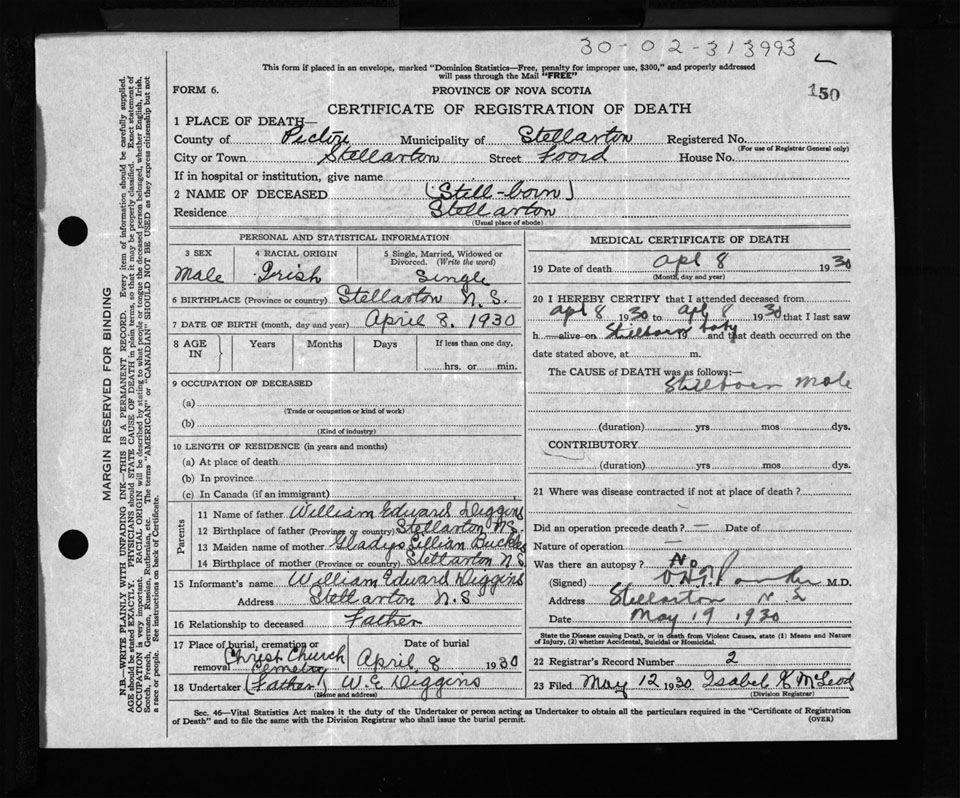 30-02-313993
This form if placed in an envelope, marked "Dominion Statistics—Free, penalty for improper use, $300," and properly addressed
will pass through the Mail "FREE"
FORM 6. PROVINCE OF NOVA SCOTIA 150
CERTIFICATE OF REGISTRATION OF DEATH
1 PLACE OF DEATH—
County of Pictou Municipality of Stellarton Registered No.
(For use of Registrar General only)
City or Town Stellarton Street Foord House No.
If in hospital or institution, give name
2 NAME OF DECEASED (Still-born)
Residence Stellarton
(Usual place of abode)
PERSONAL AND STATISTICAL INFORMATION
3 SEX 4 RACIAL ORIGIN 5 Single, Married, Widowed or
Divorced. (Write the word)
Male Irish Single
6 BIRTHPLACE (Province or country) Stellarton N.S.
7 DATE OF BIRTH (month, day and year) April 8. 1930
8 AGE IN Years Months Days If less than one day,
hrs. or min.
9 OCCUPATION OF DECEASED
(a)
(Trade or occupation or kind of work)
(b)
(Kind of industry)
10 LENGTH OF RESIDENCE (in years and months)
(a) At place of death
(b) In province
(c) In Canada (if an immigrant)
Parents
11 Name of father William Edward Diggins
12 Birthplace of father (Province or country) Stellarton N.S.
13 Maiden name of mother Gladys Lillian Buckles
14 Birthplace of mother (Province or country) Stellarton N.S
15 Informant's name William Edward Diggins
Address Stellarton N.S
16 Relationship to deceased Father
17 Place of burial, cremation or
removal Christ Church
Cemetery
Date of burial
April 8 1930
18 Undertaker (Father) W.E. Diggins
(Name and address)
MEDICAL CERTIFICATE OF DEATH
19 Date of death Apl 8 1930
(Month, day and year)
20 I HEREBY CERTIFY that I attended deceased from
Apl 8 1930 to Apl 8 1930 that I last saw
h alive on Stillborn baby 19 and that death occurred on the
date stated above, at m.
The CAUSE of DEATH was as follows:—
Stillborn Male
(duration) yrs mos dys.
CONTRIBUTORY
(duration) yrs mos dys.
21 Where was disease contracted if not at place of death?
Did an operation precede death? — Date of
Nature of operation —
Was there an autopsy? No
(Signed) M.D.
Address Stellarton N.S
Date May 19 1930
State the Disease causing Death, or in death from Violent Causes, state (1) Means and Nature
of Injury, (2) whether Accidental, Suicidal or Homicidal.
22 Registrar's Record Number 2
23 Filed May 12 1930 Isabel K McLeod
(Division Registrar)
Sec. 46—Vital Statistics Act makes it the duty of the Undertaker or person acting as Undertaker to obtain all the particulars required in the "Certificate of Registration
of Death" and to file the same with the Division Registrar who shall issue the burial permit. (OVER)
MARGIN RESERVED FOR BINDING
N.B.—WRITE PLAINLY WITH UNFADING INK—THIS IS A PERMANENT RECORD. Every item of information should be carefully supplied.
AGE should be stated EXACTLY. PHYSICIANS should STATE CAUSE OF DEATH in plain terms, so that it may be properly classified. Exact statement of
OCCUPATION is very important. RACIAL ORIGIN will be described by stating to what people or tongue the deceased person belonged, whether English, Irish,
Scotch, French, German, Russian, Ruthenian, etc. The terms "AMERICAN" or "CANADIAN" SHOULD NOT BE USED as they express citizenship but not
a race or people. See instructions on back of Certificate.